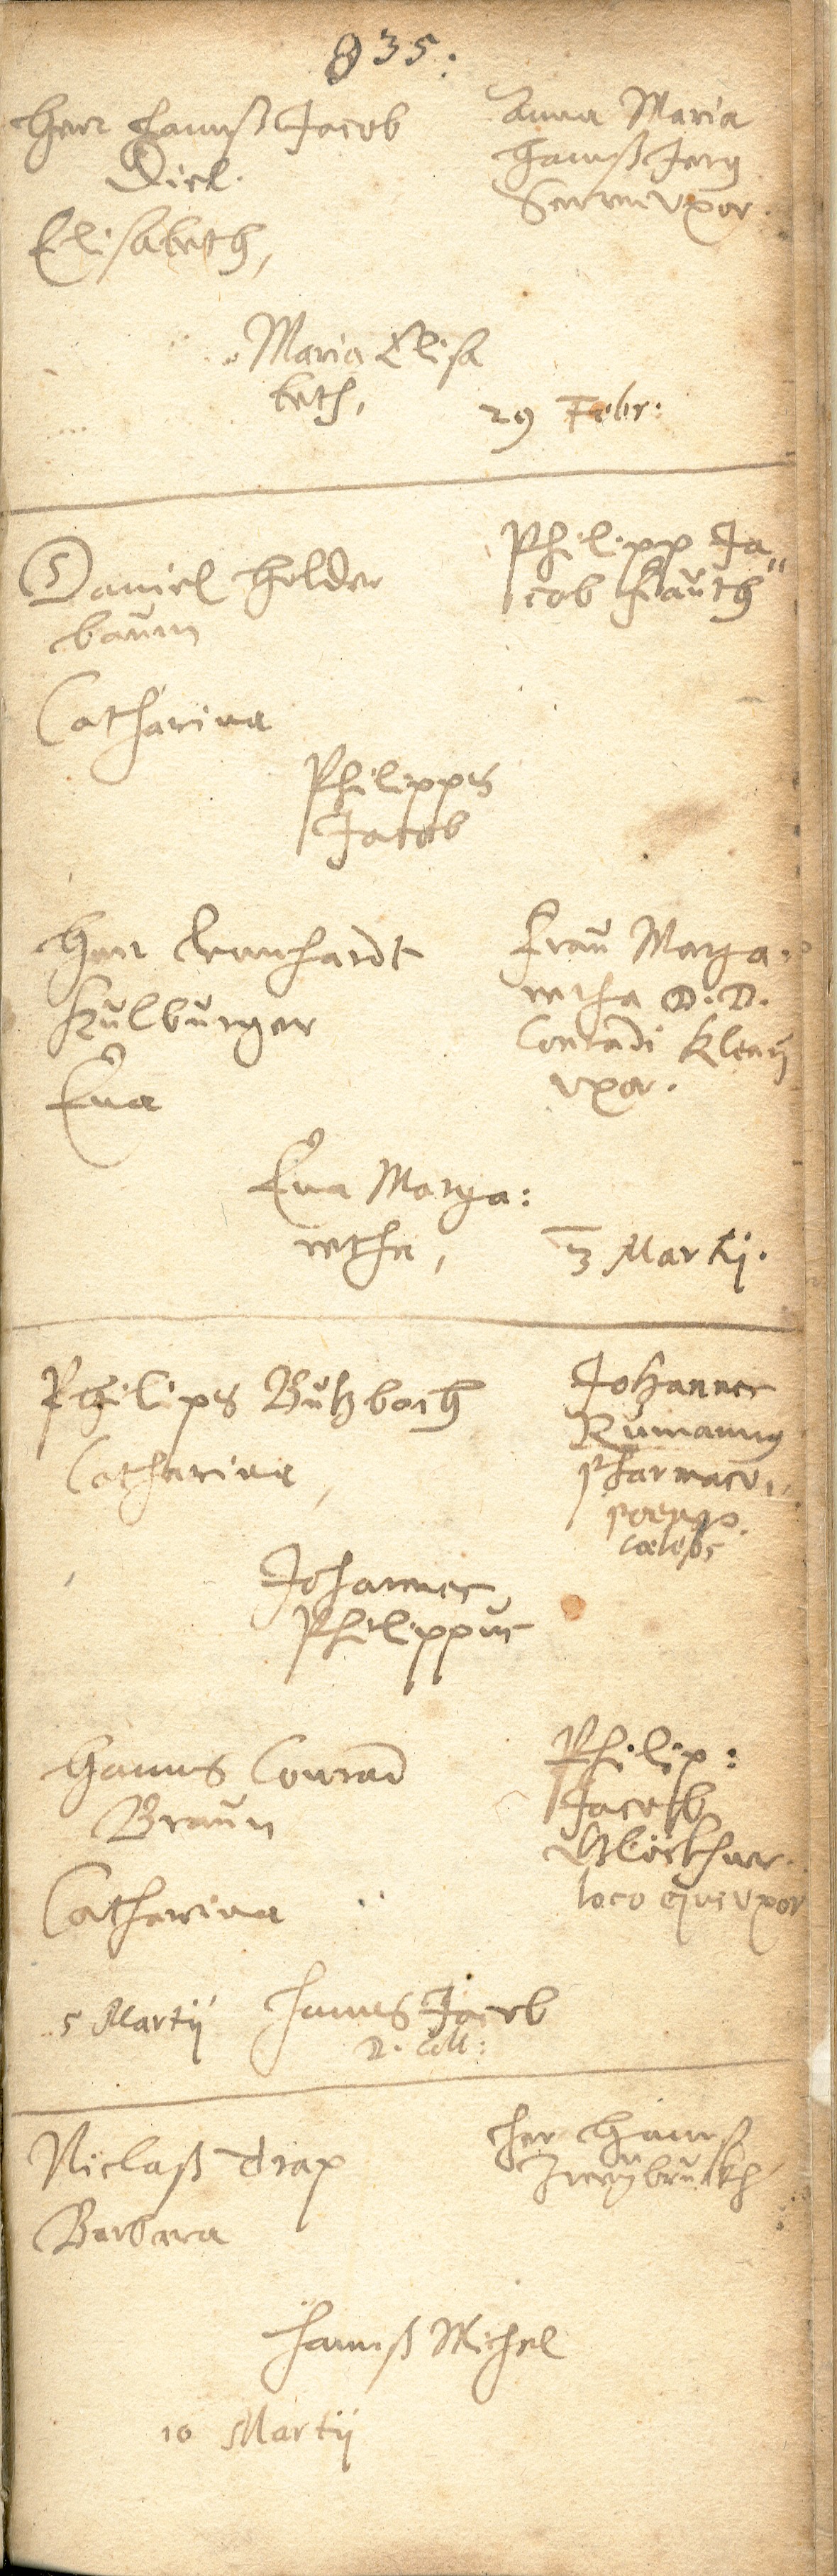 835:
Herr Hannß Jacob
Diel.
Elisabeth,
Anna Maria
Hannß Jerg
uxor
Maria Elisa
beth,
29 Febr:
Daniel Holder
baum
Catharina
Philipp Ja„
cob Fauth
Philipps
Jacob
Herr Leonhardt
Külburger
Eva
Frau Marga„
retha D. D.
Conradi
uxor.
Eva Marga:
retha,
3 Martij.
Philips Butzbach
Catharina,
Johannes
Rumannus
pharmaco„
cœlebs
Johannes
Philippus
Hanns Conrad
Braun
Catharina
Philip:
Jacob
Glöckhner.
loco ejus uxor
5 Martij
Hanns Jacob
Niclaß Trap
Barbara
Her Hannß
Zweybrückh
Hannß Michel
10 Martij